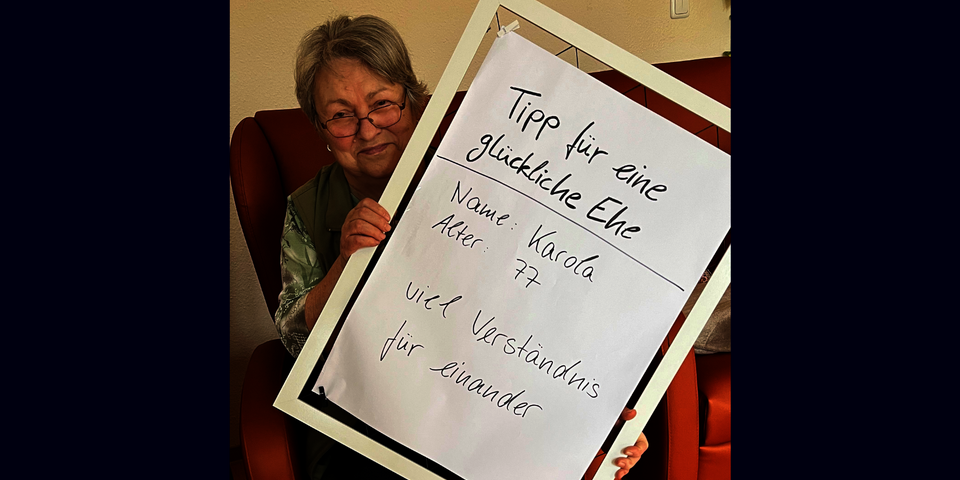 Tipp für eine
glückliche Ehe
Name: Karola
Alter: 77
viel Verständnis
für einander